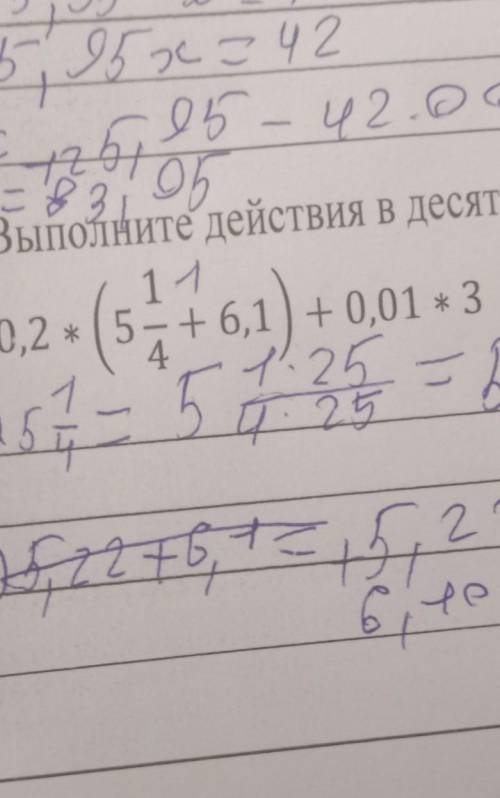 5,95x = 42
125,95 - 42.00
= 83,95
Выполните действия в десят
0,2 * (5 1/4 + 6,1) + 0,01 * 3
5 1/4 = 5 1·25/4·25 =
5,22+6,1= +5,2
6,10